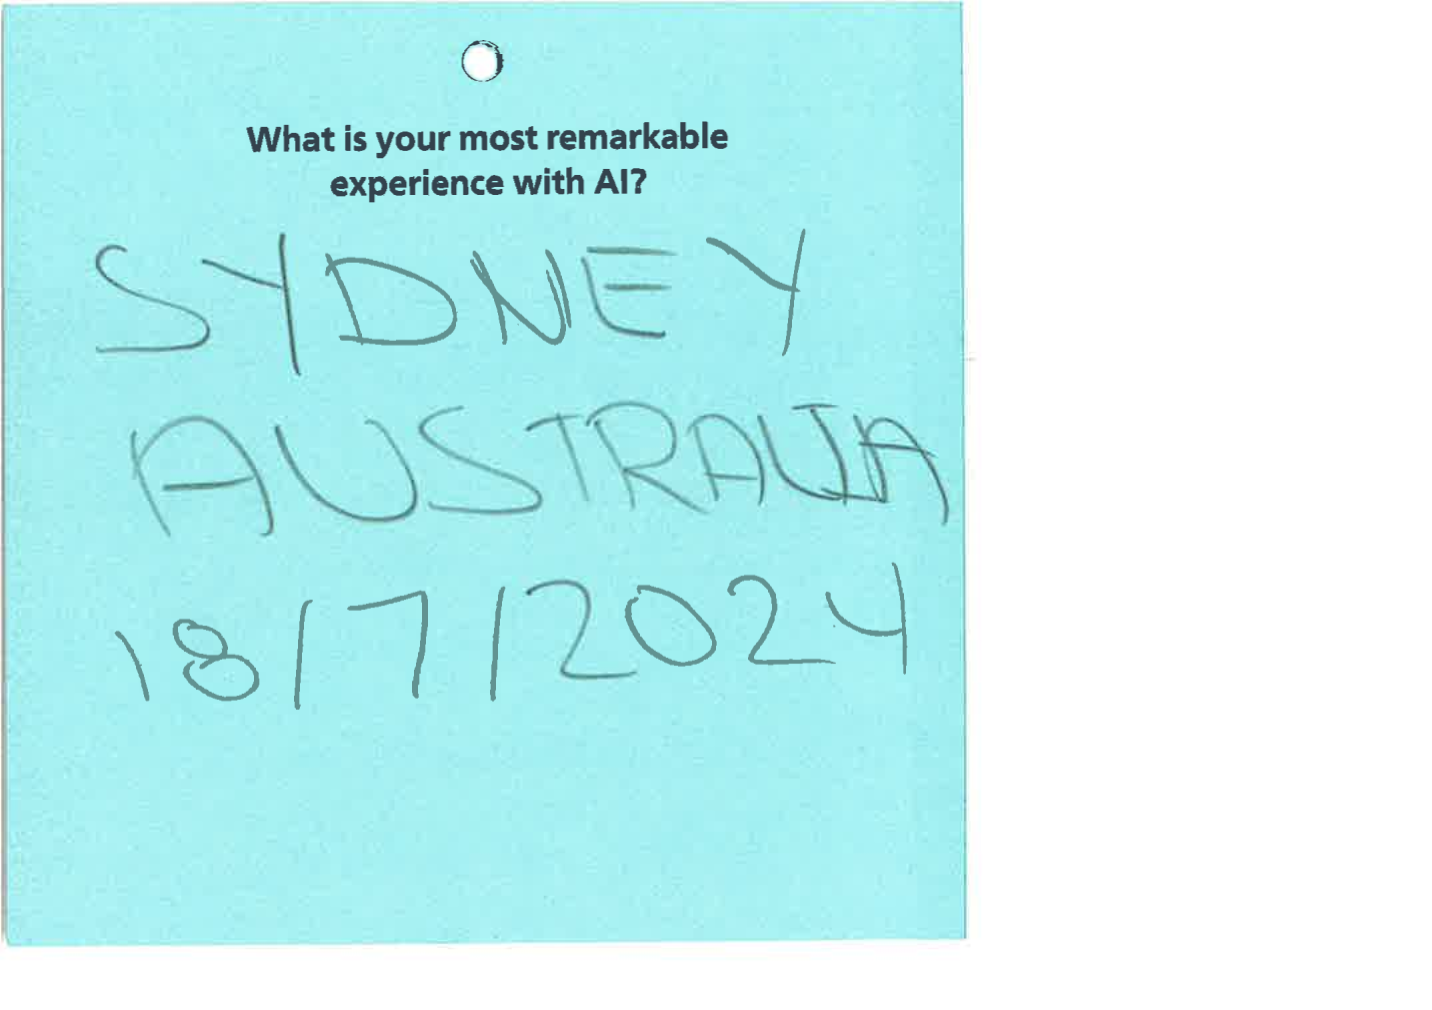 What is your most remarkable
experience with AI?
SYDNEY
AUSTRALIA
18/7/2024